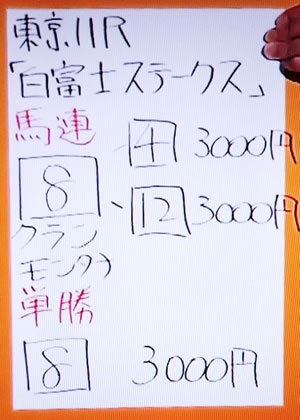 東京11R
「白富士ステークス」
馬連
4 3000円
8、12 3000円
クラン
モンタナ
単勝
8 3000円